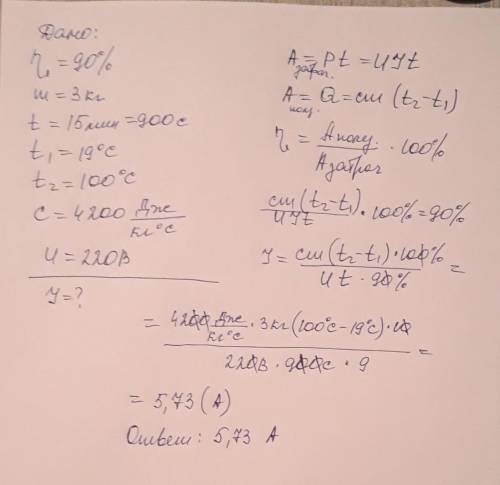 Дано:
η = 90%
m = 3 кг
t = 15 мин = 900 с
t₁ = 19°C
t₂ = 100°C
c = 4200 Дж / кг°C
U = 220В
I = ?
A затрач. = Pt = UIt
A полу. = Q = cm (t₂ - t₁)
η = Aполу. / Aзатрач · 100%
cm (t₂ - t₁) / UIt · 100% = 90%
I = cm (t₂ - t₁) · 100% / Ut · 90% =
= 4200 Дж / кг°C · 3 кг (100°C - 19°C) · 10 / 220В · 900с · 9 =
= 5,73 (А)
Ответ: 5,73 А